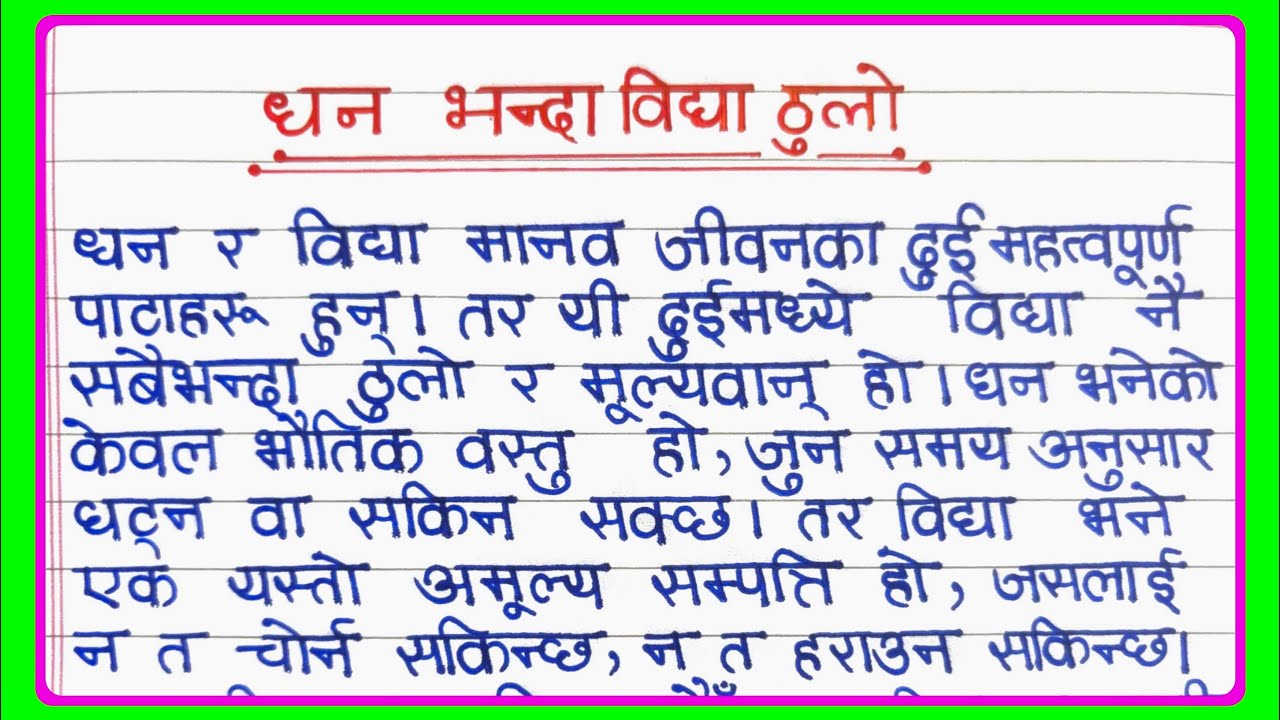 धन भन्दा विद्या ठुलो
धन र विद्या मानव जीवनका दुई महत्वपूर्ण
पाटाहरू हुन्। तर यी दुईमध्ये विद्या नै
सबैभन्दा ठुलो र मूल्यवान् हो। धन भनेको
केवल भौतिक वस्तु हो, जुन समय अनुसार
घट्न वा सकिन सक्छ। तर विद्या भने
एक यस्तो अमूल्य सम्पत्ति हो, जसलाई
न त चोर्न सकिन्छ, न त हराउन सकिन्छ।